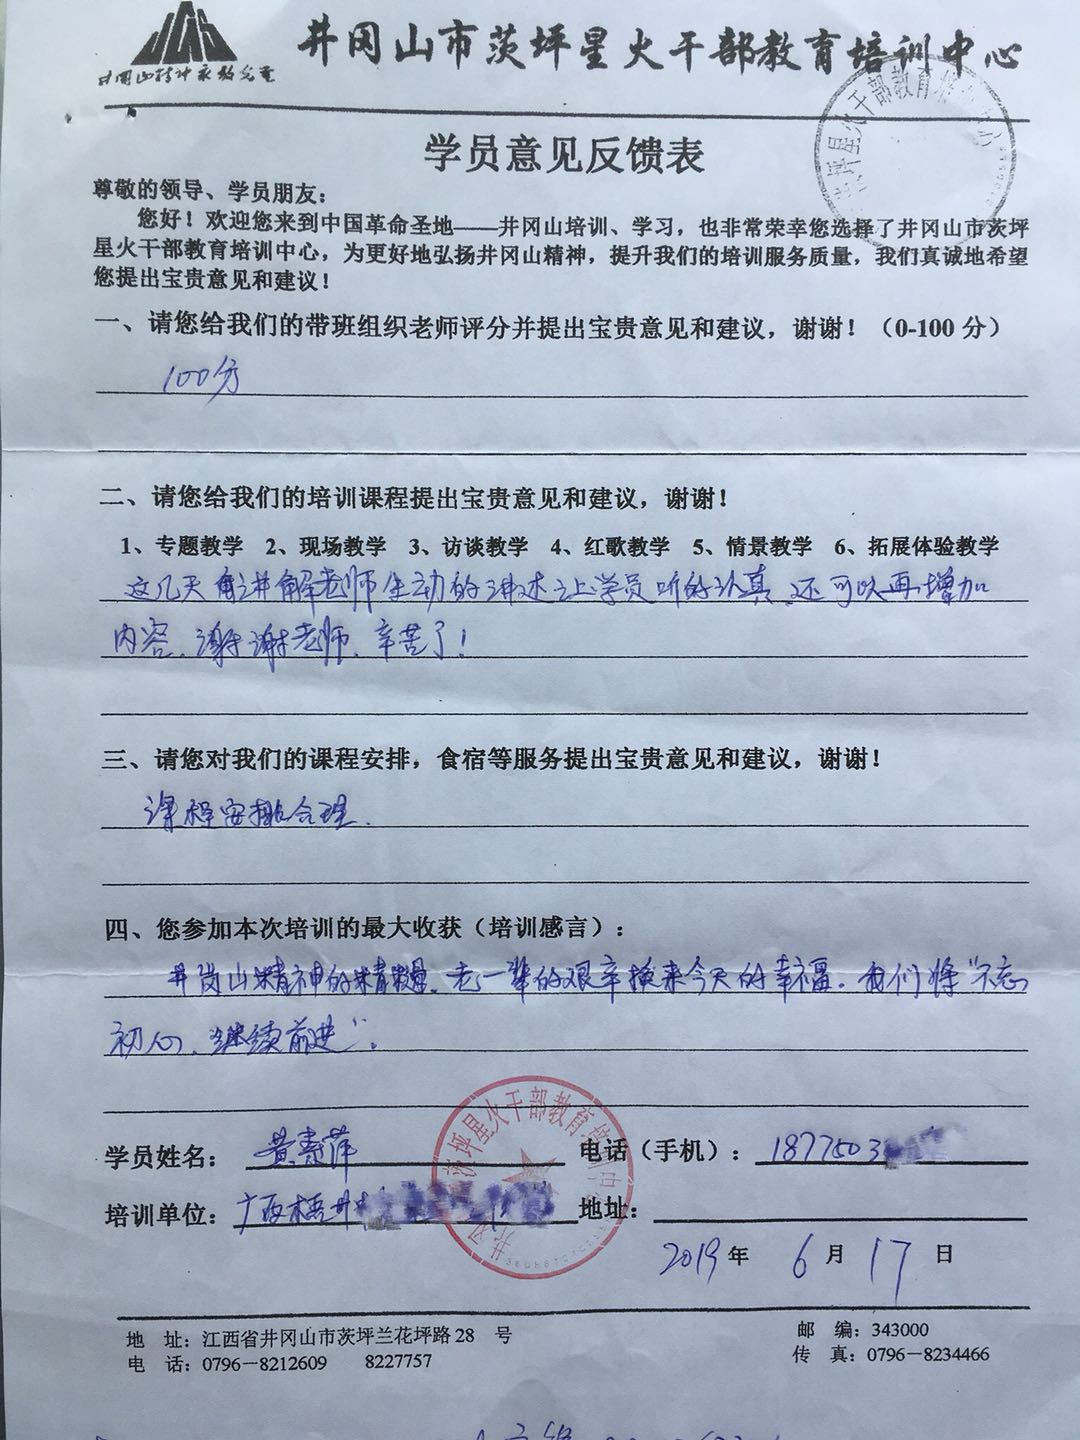 井冈山市茨坪星火干部教育培训中心
学员意见反馈表
尊敬的领导、学员朋友：
您好！欢迎您来到中国革命圣地——井冈山培训、学习，也非常荣幸您选择了井冈山市茨坪
星火干部教育培训中心，为更好地弘扬井冈山精神，提升我们的培训服务质量，我们真诚地希望
您提出宝贵意见和建议！
一、请您给我们的带班组织老师评分并提出宝贵意见和建议，谢谢！（0-100 分）
100分
二、请您给我们的培训课程提出宝贵意见和建议，谢谢！
1、专题教学 2、现场教学 3、访谈教学 4、红歌教学 5、情景教学 6、拓展体验教学
这几天有讲解老师生动的讲述让学员听的认真，还可以再增加
内容，谢谢老师，辛苦了！
三、请您对我们的课程安排，食宿等服务提出宝贵意见和建议，谢谢！
课程安排合理.
四、您参加本次培训的最大收获（培训感言）：
井岗山精神的精髓，老一辈的艰辛换来今天的幸福。我们将“不忘
初心，继续前进”。
学员姓名： 黄寿萍 电话（手机）： 1877503
培训单位： 广西梧州 地址：
2019年 6月17日
地 址：江西省井冈山市茨坪兰花坪路28 号 邮 编：343000
电 话：0796－8212609 8227757 传 真：0796－8234466